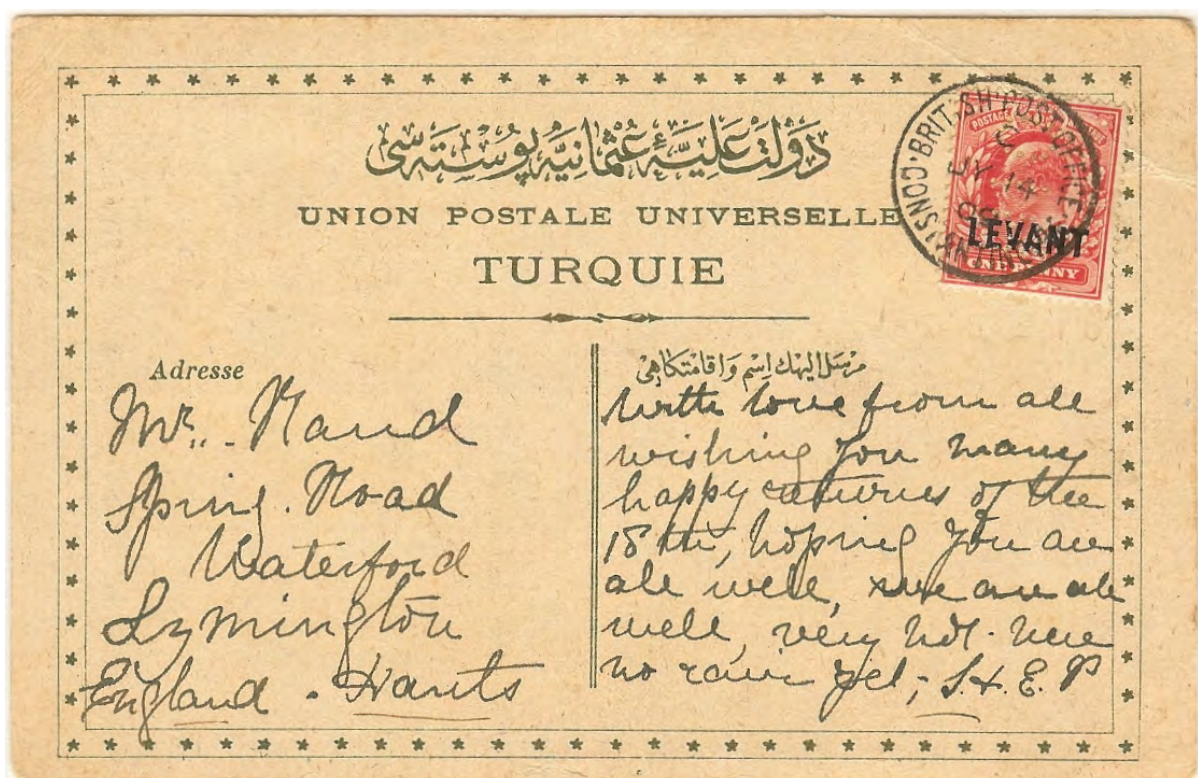 دَوْلَتِ عَلِيَّهٔ عُثْمَانِيَّه پُوسْتَه سِى
UNION POSTALE UNIVERSELLE
TURQUIE
BRITISH·POST·OFFICE·CONSTANTINOPLE
C
JY 14
09
POSTAGE
LEVANT
ONE PENNY
Adresse
Mr. Rand
Spring. Road
Waterford
Lymington
England - Hants
مرسل اليهك اسم و اقامتكاهى
With love from all
wishing you many
happy returns of the
18th, hoping you are
all well, we are all
well, very hot here
no rain yet,- S.H.E.P